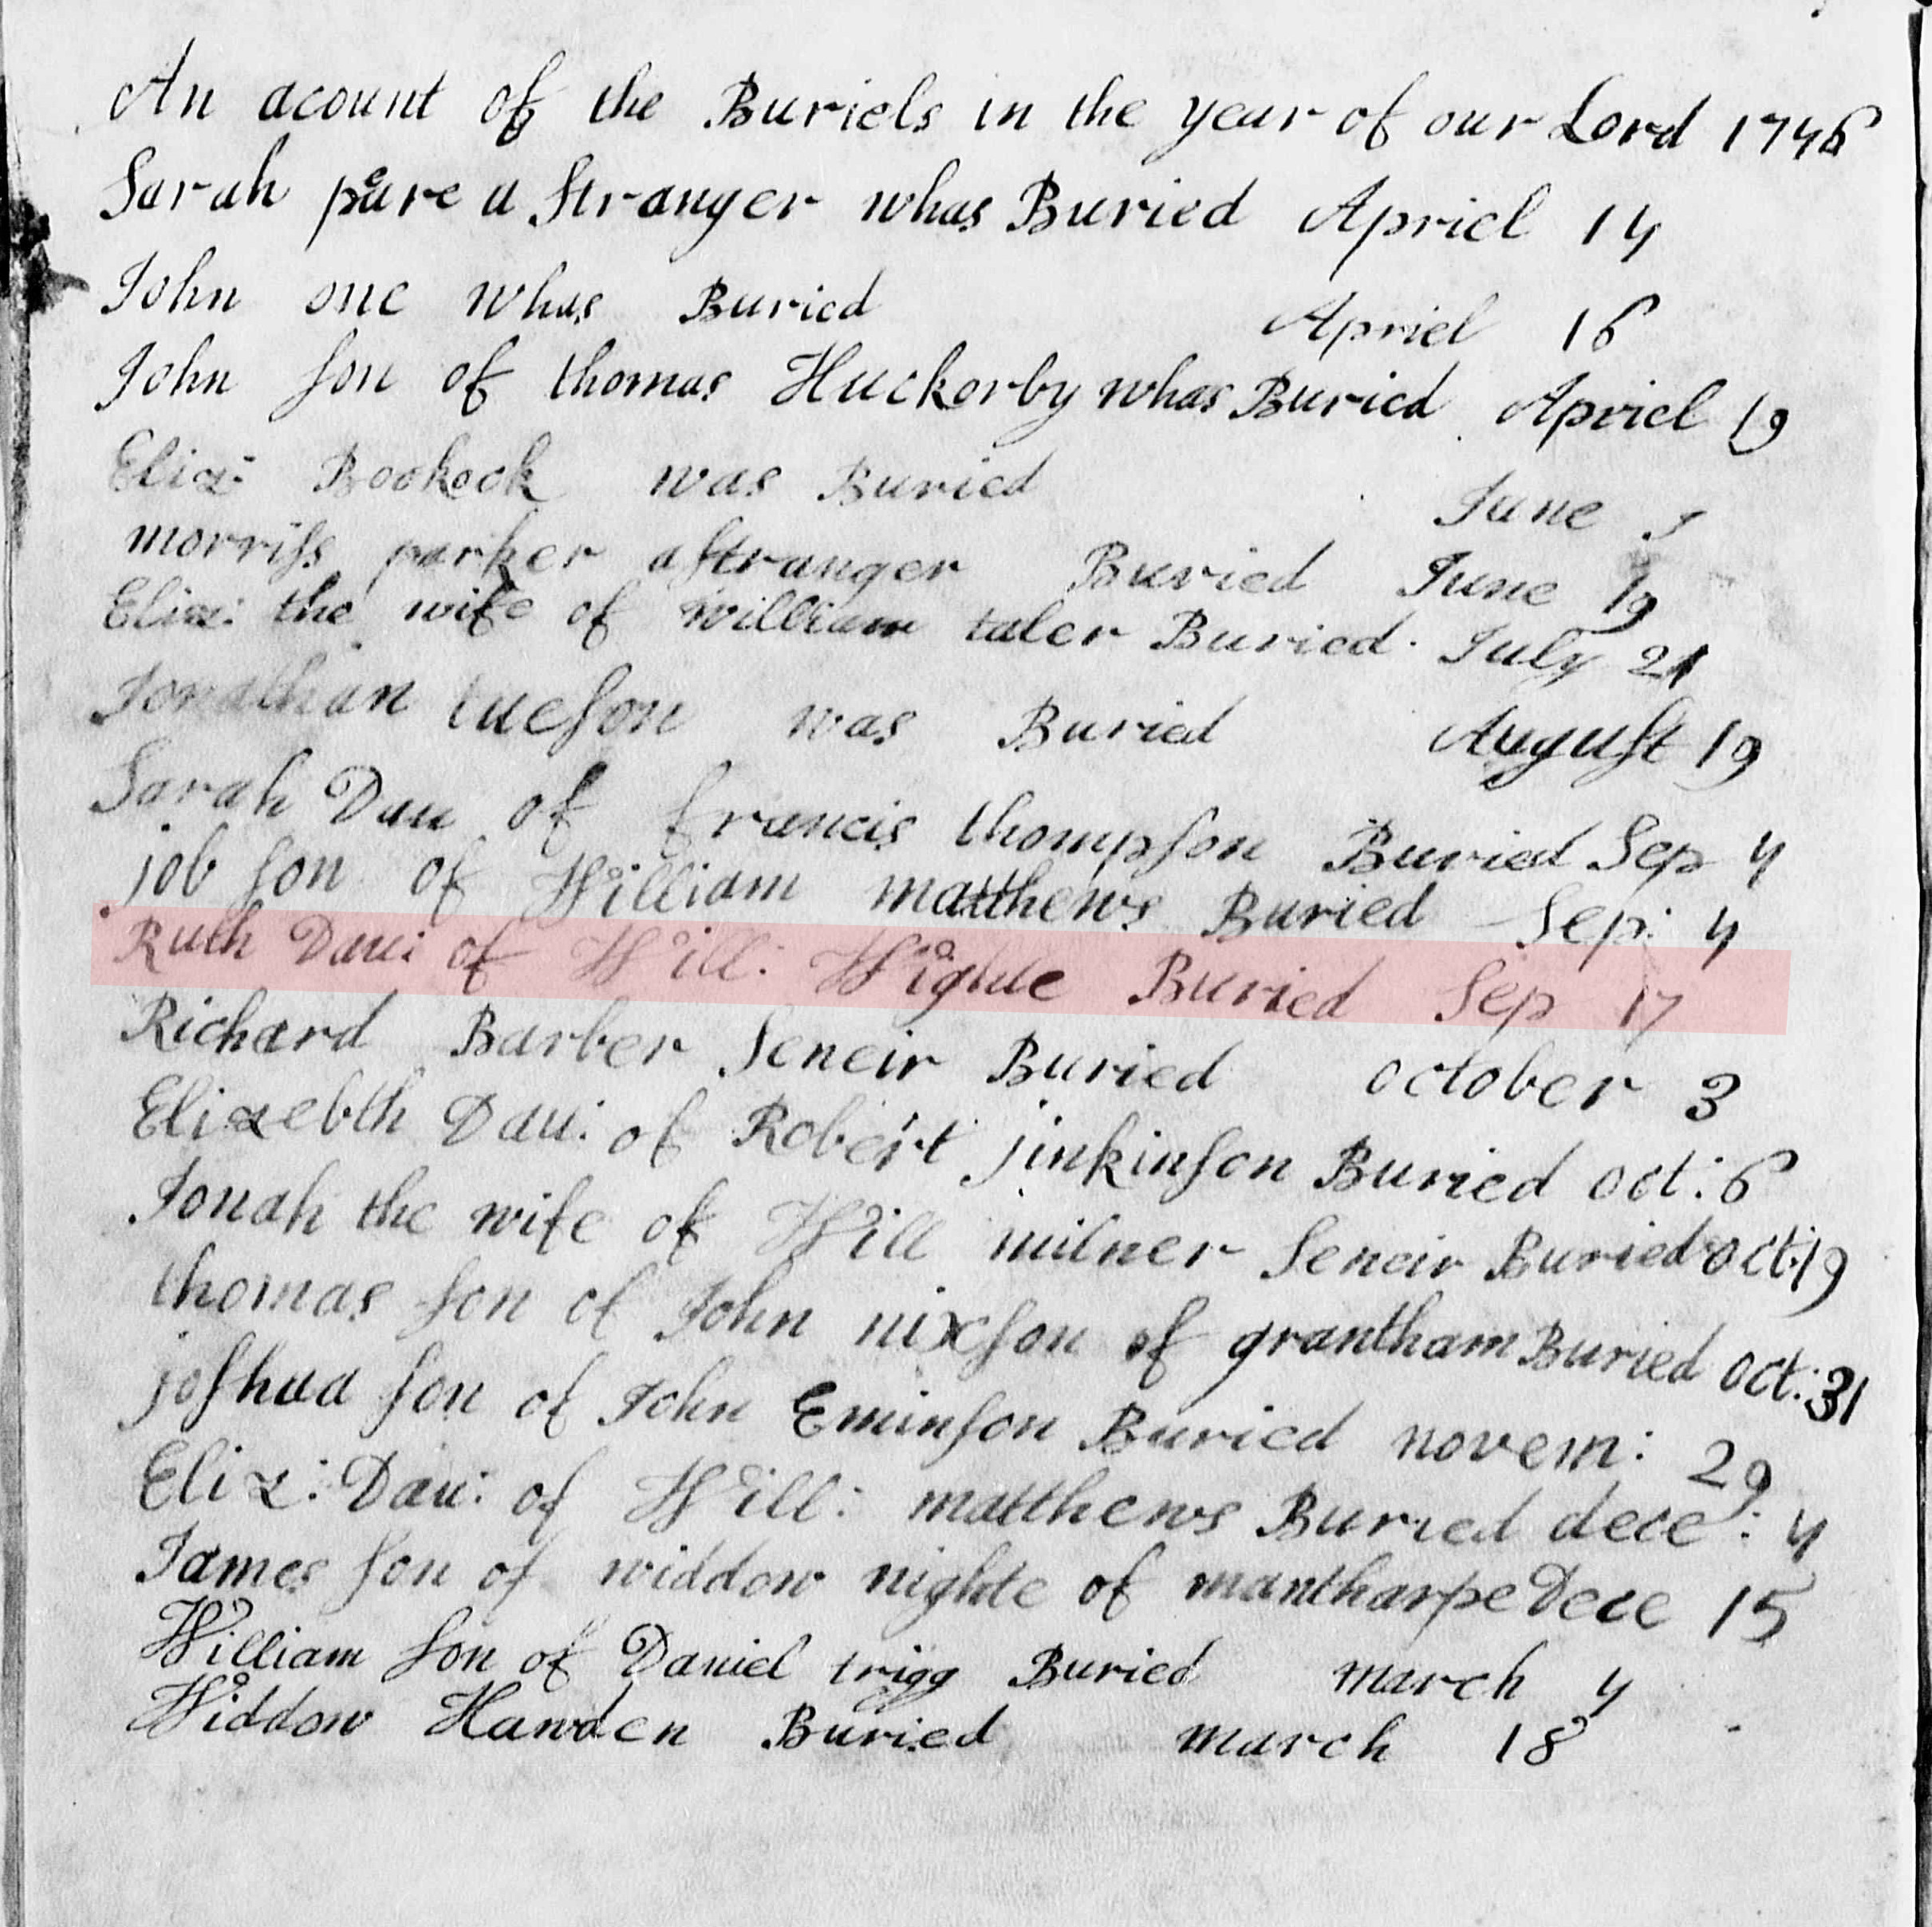 An acount of the Buriels in the year of our Lord 1746
Sarah peare a Stranger whas Buried Apriel 14
John one whas Buried Apriel 16
John son of thomas Huckorby whas Buried Apriel 19
Eliz: Bookock was Buried June
morriss parker a stranger Buried June 19
Eliz: the wife of william taler Buried July 21
Jonathan tueson was Buried August 19
Sarah Dau of francis thompson Buried Sep 4
job son of William matthews Buried Sep: 4
Ruth Dau: of Will: Wighte Buried Sep 17
Richard Barber Seneir Buried october 3
Elizebth Dau: of Robert jinkinson Buried oct: 6
Jonah the wife of Will milner Seneir Buried oct: 19
thomas son of John nixson of grantham Buried oct: 31
joshua son of John Eminson Buried novem: 29
Eliz: Dau: of Will: matthews Buried dece: 4
James son of widdow nighte of mantharpe Dece 15
William son of Daniel trigg Buried march 4
Widdow Hawden Buried march 18